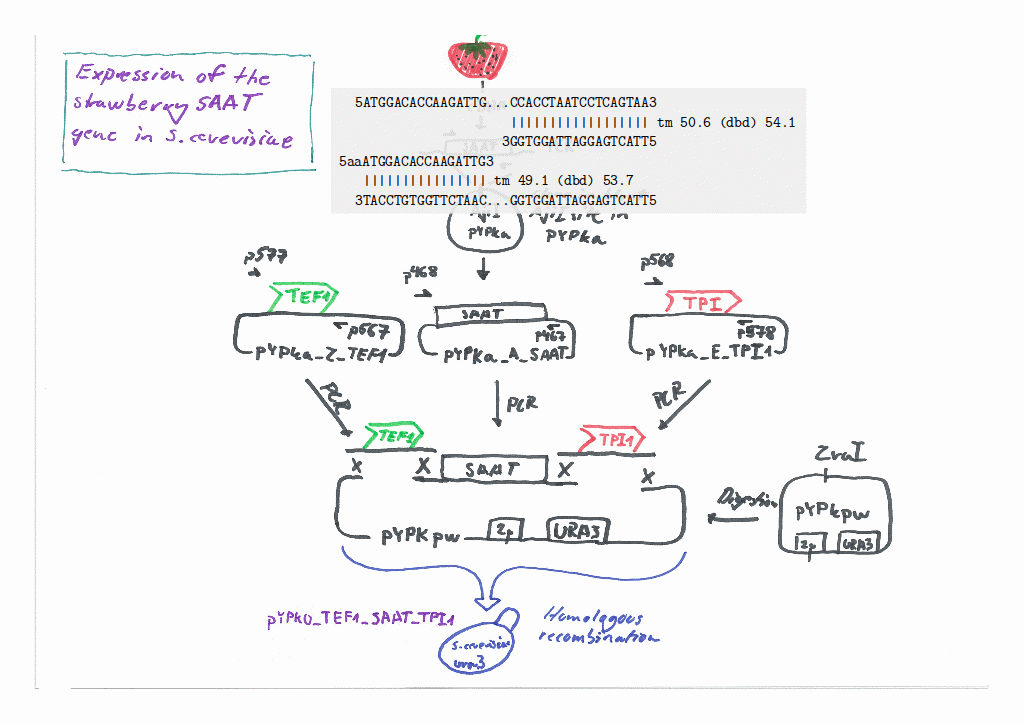 Expression of the
stawberry SAAT
gene in S.cerevisiae
5ATGGACACCAAGATTG...CCACCTAATCCTCAGTAA3
|||||||||||||||||| tm 50.6 (dbd) 54.1
3GGTGGATTAGGAGTCATT5
5aaATGGACACCAAGATTG3
|||||||||||||||| tm 49.1 (dbd) 53.7
3TACCTGTGGTTCTAAC...GGTGGATTAGGAGTCATT5
in
pYPKa
pYPKa
p577
p468
p568
TEF1
SAAT
TPI
p567
p467
p578
pYPka_Z_TEF1
pYPKa_A_SAAT
pYPKa_E_TPI1
PCR
PCR
PCR
TEF1
TPI1
X
X
SAAT
X
X
ZraI
Digestion
pYPkpw
2µ
URA3
pYPKpw
2µ
URA3
pYPK0_TEF1_SAAT_TPI1
Homologous
recombination
S.cerevisiae
ura3